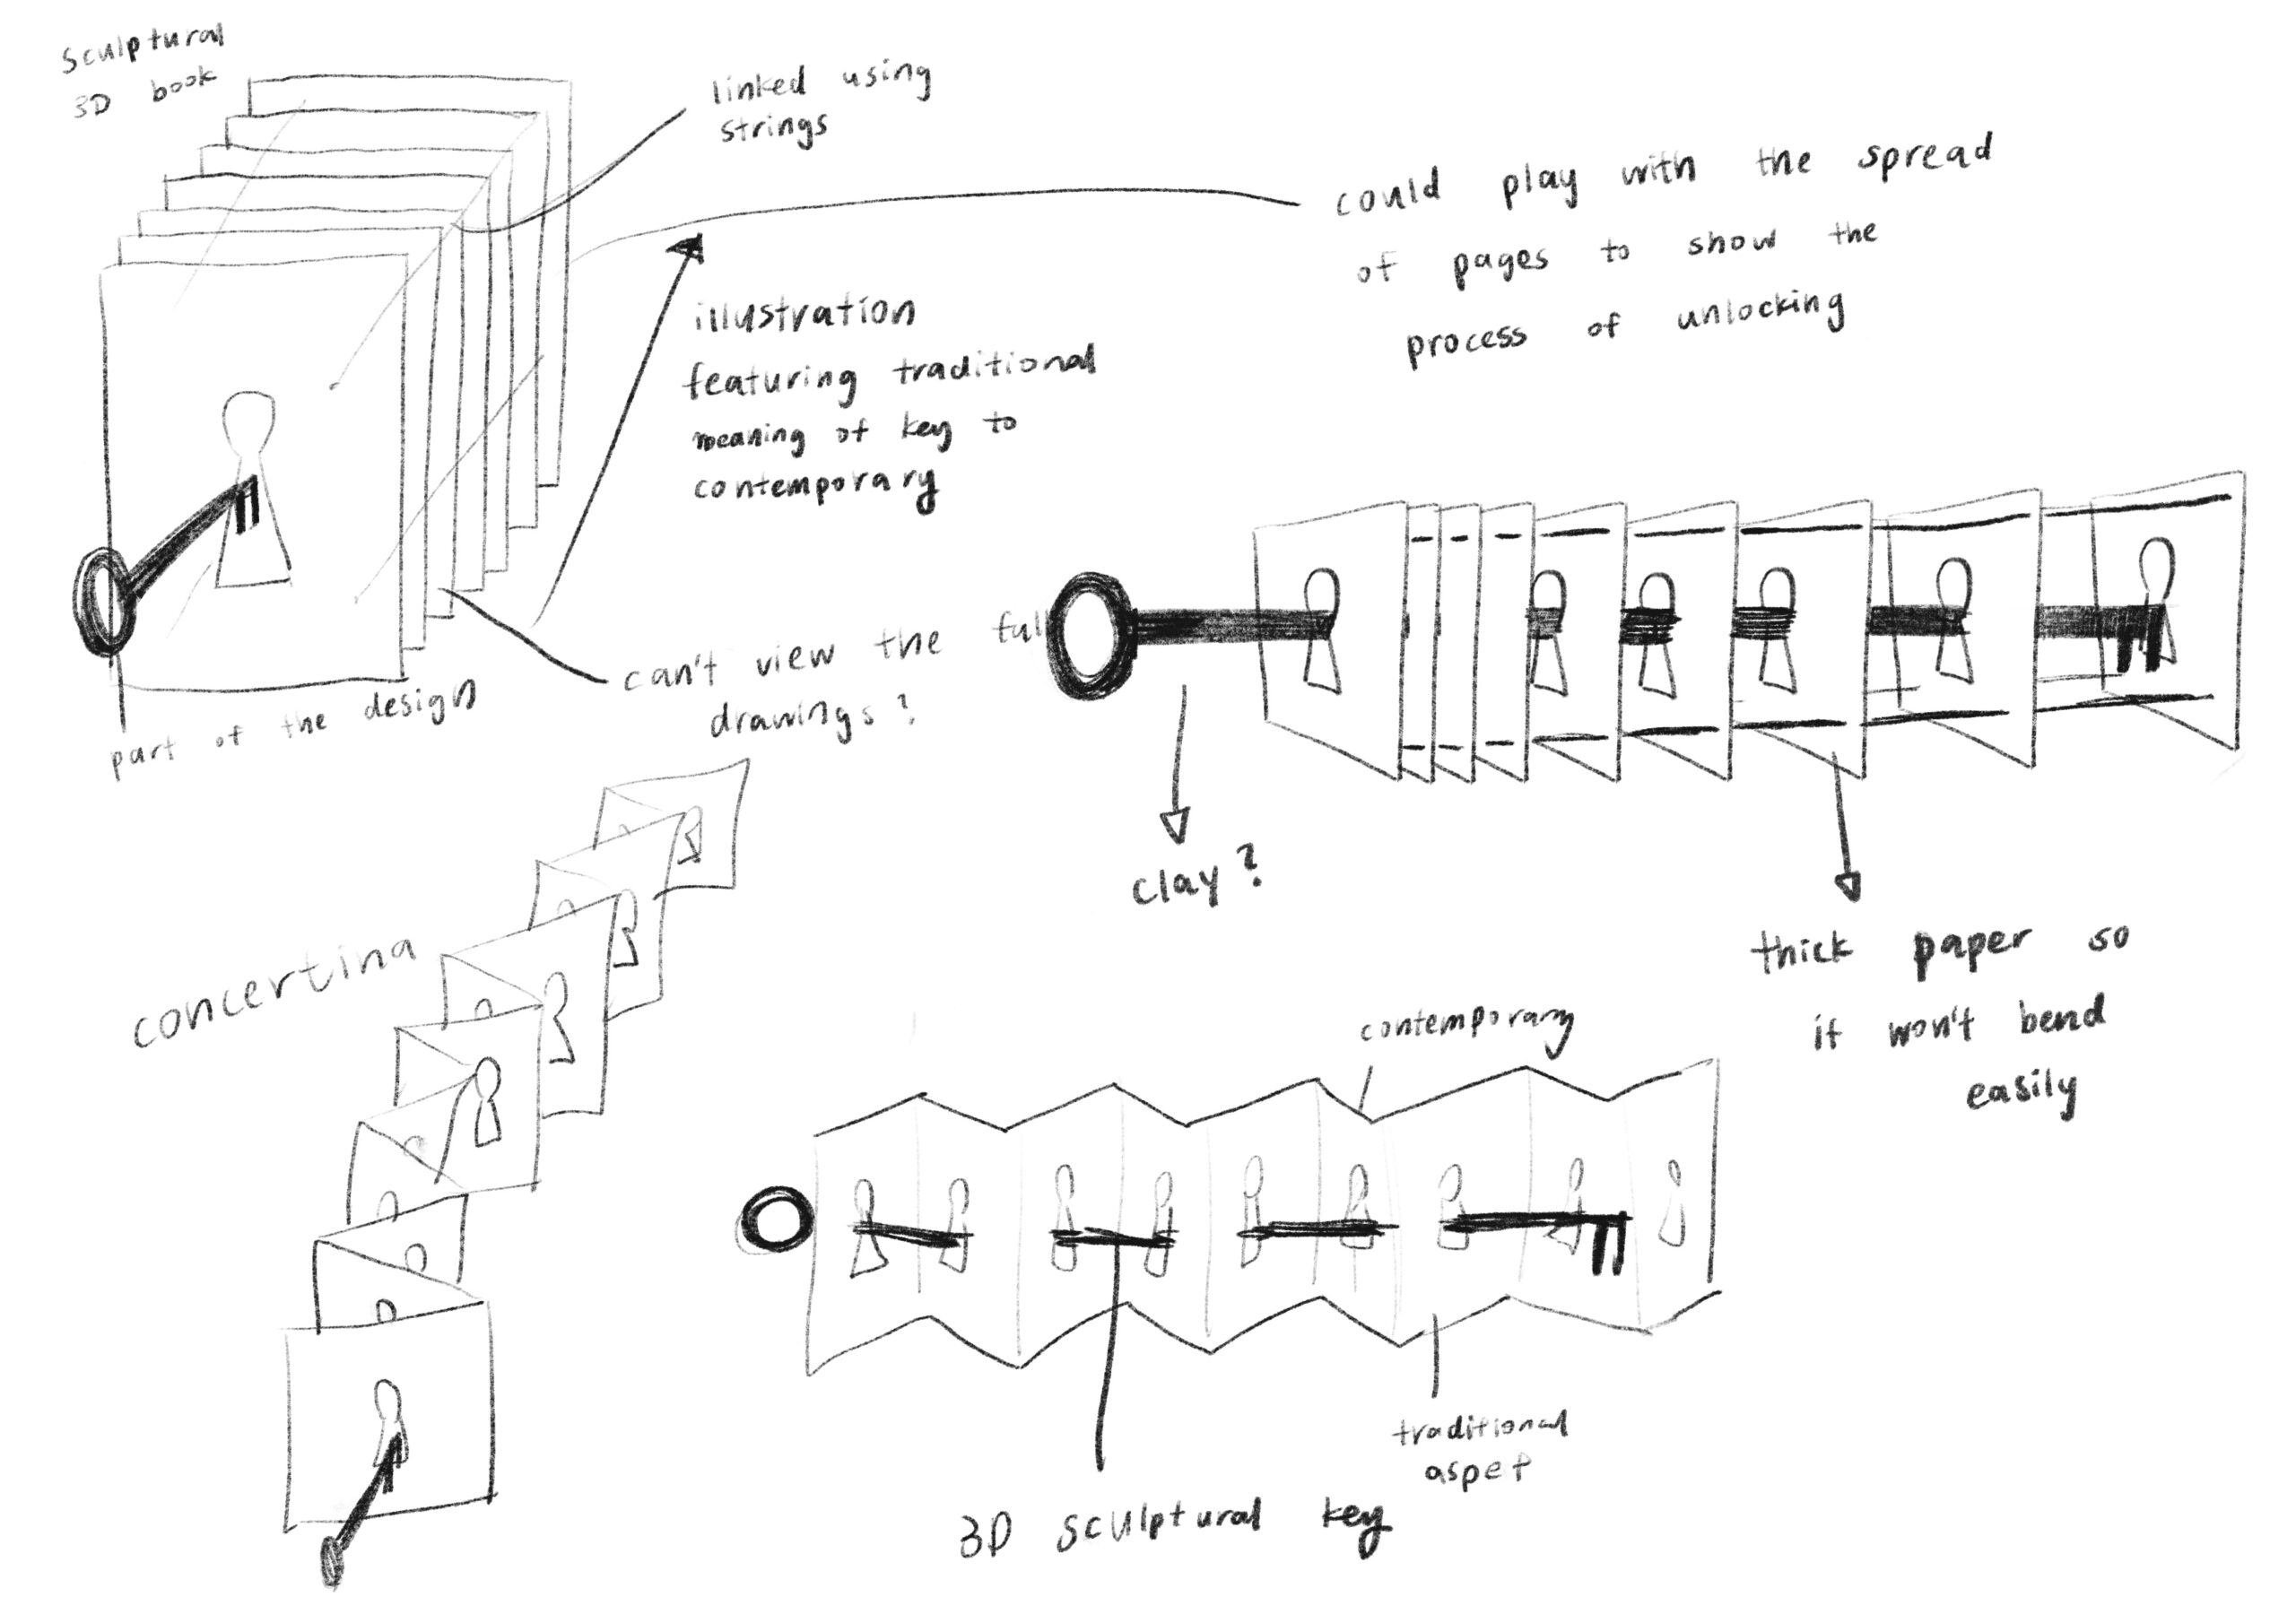 sculptural
3D book
linked using
strings
could play with the spread
of pages to show the
process of unlocking
illustration
featuring traditional
meaning of key to
contemporary
can't view the full
drawings?
part of the design
clay?
thick paper so
it won't bend
easily
concertina
contemporary
traditional
aspet
3D sculptural key